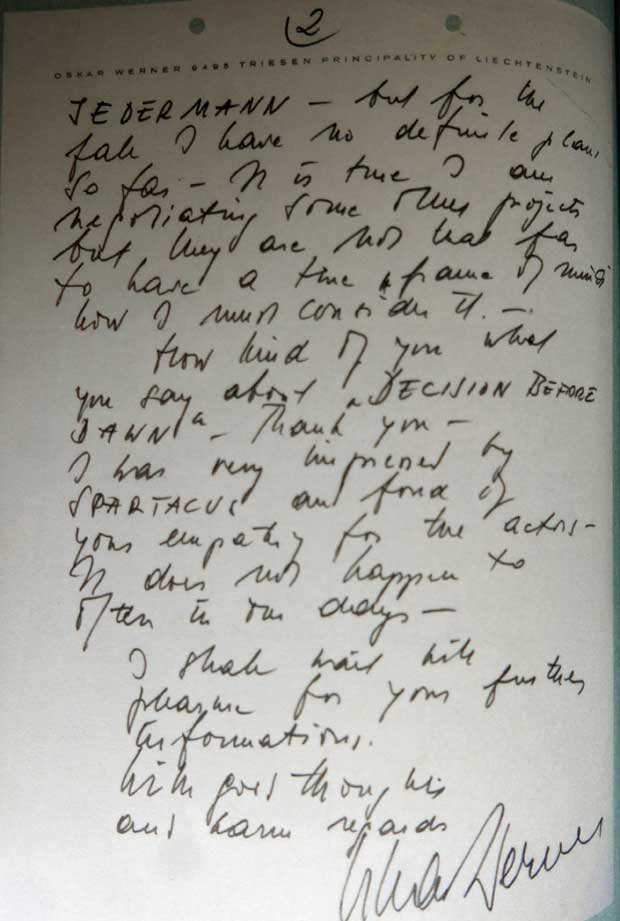 2
OSKAR WERNER 9495 TRIESEN PRINCIPALITY OF LIECHTENSTEIN
JEDERMANN – but for the
fall I have no definite plans
so far – It is true I am
negotiating some other projects
but they are not that far
to have a time frame of mind
how I must consider it. –
How kind of you what
you say about „DECISION BEFORE
DAWN“ – Thank you –
I was very impressed by
SPARTACUS and fond of
your empathy for the actors –
It does not happen to
often in our days –
I shall wait with
pleasure for your further
informations.
With good thoughts
and warm regards
Oskar Werner